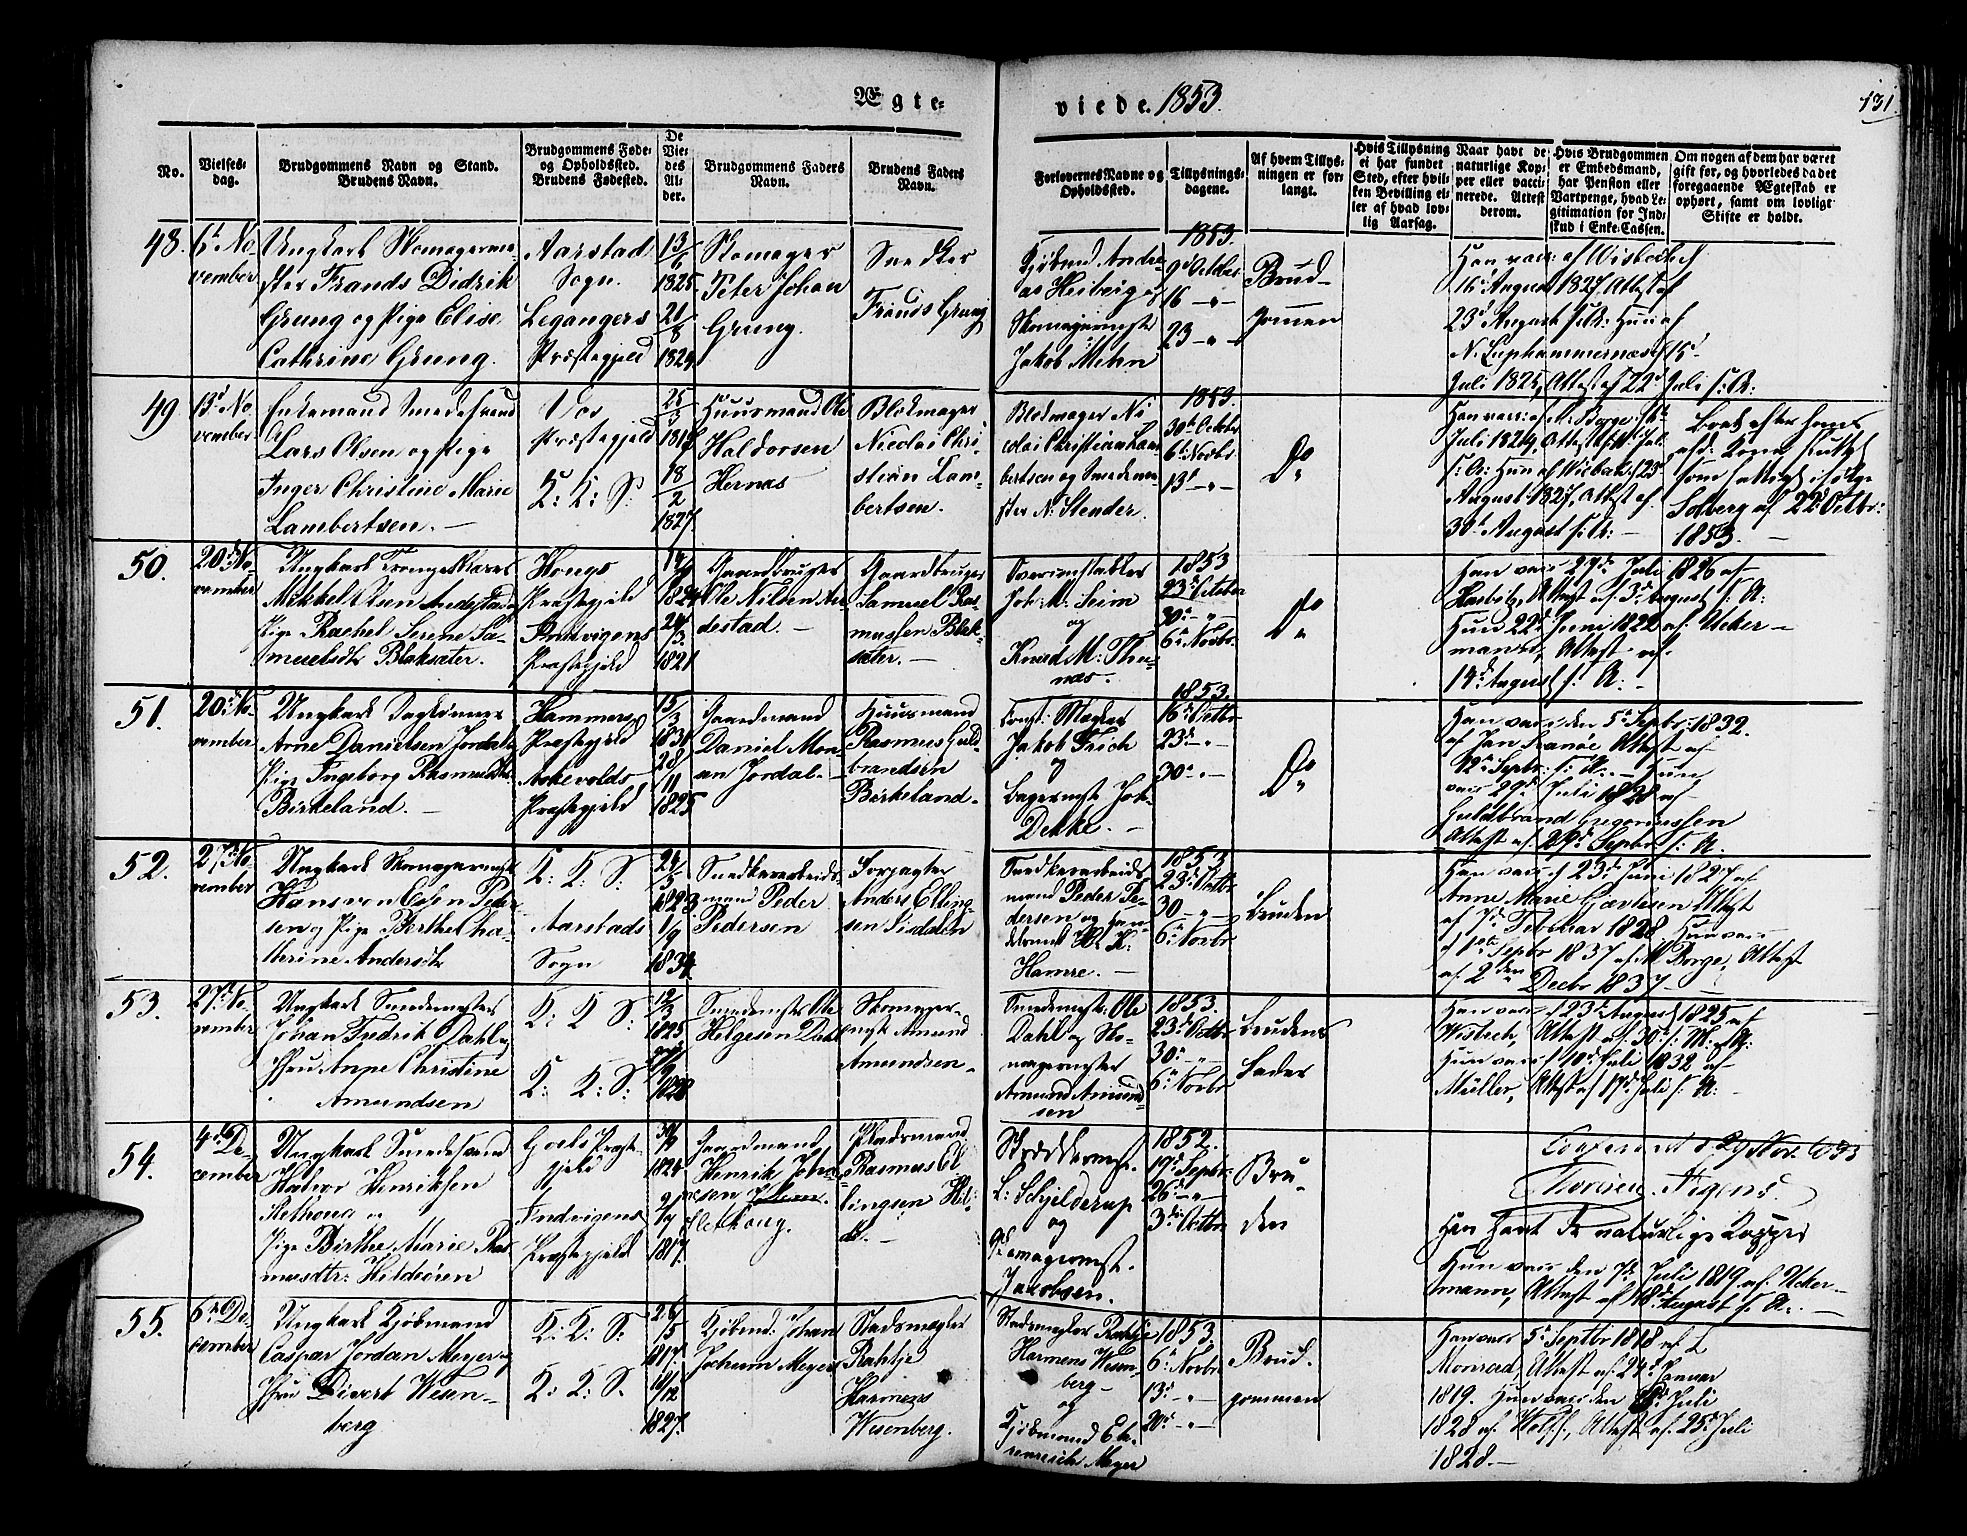 Ægte-
viede. 1853.
131
No.
Vielses-
dag.
Brudgommens Navn og Stand.
Brudens Navn.
Brudgommens Føde-
og Opholdssted.
Brudens Fødested.
De
Vie-
des
Al-
der.
Brudgommens Faders
Navn.
Brudens Faders
Navn.
Forlovernes Navne og
Opholdssted.
Tillysnings-
dagene.
Af hvem Tillys-
ningen er for-
langt.
Hvis Tillysning
ei har fundet
Sted, efter hvil-
ken Bevilling el-
ler af hvad lov-
lig Aarsag.
Naar havt de
naturlige Kop-
per eller vacci-
nerede. Attest
derom.
Hvis Brudgommen
er Embedsmand,
har Pension eller
Vartpenge, hvad Le-
gitimation for Ind-
skud i Enke-Cassen.
Om nogen af dem har været
gift før, og hvorledes da det
foregaaende Ægteskab er
ophørt, samt om lovligt
Skifte er holdt.
48.
6te No-
vember
Ungkarl Skomagerme-
ster Frands Didrik
Grung og Pige Elise
Cathrine Grung.
Aarstad
Sogn.
Legangers
Præstegjeld
13/6
1825
21/8
1824
Skomager
Peter Johan
Grung.
Snedker
Frands Grung
Kjøbmd. Andre-
as Heiberg og
Skomagermester
Jakob Mehn
1853.
9de Octbr
16 -"-
23 -"-
Brud-
gommen
Han vacc: af Wisbech
16de August 1827 Attest af
23de August s: A: Hun af
N. Luphammernæs 15de
Juli 1825, Attest af 22de Juli s: A:
49
13de No-
vember
Enkemand Smedesvend
Lars Olsen og Pige
Inger Christine Marie
Lambertsen. -
Vos
Præstegjeld
K: K: S:
25/3
1818
18/2
1827
Huusmand Ole
Haldorsen
Hernæs
Blokmager
Nicolai Chri-
stian Lam-
bertsen.
Blokmager Ni-
colai Christian Lam-
bertsen og Smedeme-
ster N: Stender.
1853.
30te Octbr
6te Novbr.
13de -"-
Do
Juli 1824, Attest
s: A: Hun af Wisbech 23
August 1827, Attest af
30te August s: A: -
Brak efter hans
afd: Kone
som fattigt ifølge
Solberg af 22de Octbr:
1853. -
50.
20de No-
vember
Ungkarl
Mikkel Olsen Andestad og
Pige Rachel Serene Sa-
muelsdtr Blaksæter.
Hougs
Præstegjeld
Indvigens
Præstegjeld
1824
24/3
1821
Gaardbruger
Ole Nilsen An-
destad. -
Gaardbruger
Samuel Ras-
mussen Blak-
sæter. -
Joh: M: Seim
og
Knud M: Thu-
næs.
1853
23de Octbr
30te -"-
6te Novbr.
Do
Han vacc 27de Juli 1826 af
Hasbitz, Attest af 3de August s: A:
Hun 22de Juni 1822 af Ucker-
mann, Attest af
14de August s: A: -
51.
20de No-
vember
Ungkarl Dagleiner
Arne Danielsen Jordal og
Pige Ingeborg Rasmusdtr
Birkeland. -
Hammers
Præstegjeld
Askevolds
Præstegjeld
15/3
1831
28/11
1825
Gaardmand
Daniel Mon-
sen Jordal. -
Huusmand
Rasmus Guld-
brandsen
Birkeland.
Const: Mægler
Jakob Frich
og
Bagermst: Joh:
Dekke. -
1853.
16de Octbr
23de -"-
30te -"-
Do
Han vacc den 5te Septbr: 1832.
af Jan Svanøe Attest af
12te Septbr. s: A: - Hun
vacc 29de Juli 1828 af
Guldbrand Gregoriussen
Attest af 29de Septbr s: A:
52.
27de No-
vember
Ungkarl Skomagermst
Hans von Essen Peder-
sen og Pige Berthe Cha-
therine Andersdtr
K: K: S:
Aarstads
Sogn
24/5
1823
1/9
1834
Snedkerarbeids-
mand Peder
Pedersen
Forpagter
Anders Elling-
sen Siddalen
Snedkerarbeids-
mand Peder Pe-
dersen og
H: K:
Hamre. -
1853
23de Octbr
30 -"-
6te Novbr
Bruden
Han vacc 23de Juni 1827 af
Anne Marie Giertsen Attest
af 7de Februar 1828 Hun vacc
1ste Septbr 1837 af M. Borge, Attest
af 2den Decbr 1837 -
53.
27de No-
vember
Ungkarl Smedemester
Johan Fredrik Dahl og
Jfru Anne Christine
Amundsen
K: K: S:
K: K: S:
12/3
1825
1828
Smedemester Ole
Helgesen Dahl
Skomager-
mst Amund
Amundsen.
Smedemst: Ole
Dahl og Sko-
magermester
Amund Amund-
sen
1853.
23de Octbr
30te -"-
6te Novbr
Brudens
Fader
Han vacc 23de August 1825 af
Wisbech, Attest af 30te s: M: & A:
Hun vacc 10de Juli 1832 af
Müller, Attest af 17de Juli s: A: -
54.
4de De-
cember
Ungkarl Smedesvend
Halvor Henriksen
Slethoug og
Pige Birthe Marie Ras-
musdtr: Hildeøien
Goels Præste-
gjeld
Indvigens
Præstegjeld
30/9
1824
2/9
1817.
Gaardmand
Henrik Joha-
nesen
Slethoug.
Pladsmand
Rasmus El-
lingsen Hil-
d. -
Skræddermst.
L: Schjelderup
og
Skomagermst.
Jakobsen.
1852.
19de Septbr:
26de -"-
3die Octbr
Bru-
den
Copuleret d. 29 Nov. 1853
Han havt de naturlige Kopper
Hun vacc den 7de Juli 1819 af Ucker-
mann, Attest af 18de August s: A: -
55.
6te De-
cember
Ungkarl Kjøbmand
Caspar Jordan Meyer og
Jfru Divert Wesen-
berg
K: K: S:
K: K: S.
26/5
1817.
10/12
1827.
Kjøbmd: Johan
Jochum Meyer
Stadsmægler
Rahtje
Harmens
Wesenberg.
Stadsmægler Rahtje
Harmens Wesen-
berg -
og
Kjøbmand Eh-
renreich Meyer
1853.
6te Novbr
13de -"-
20de -"-
Brud-
gommen
Han vacc 5te Septbr 1818 af L
Monrad, Attest af 24de Januar
1819. Hun vacc den Juli
1828 af Wolff, Attest af 25de Juli
1828. -